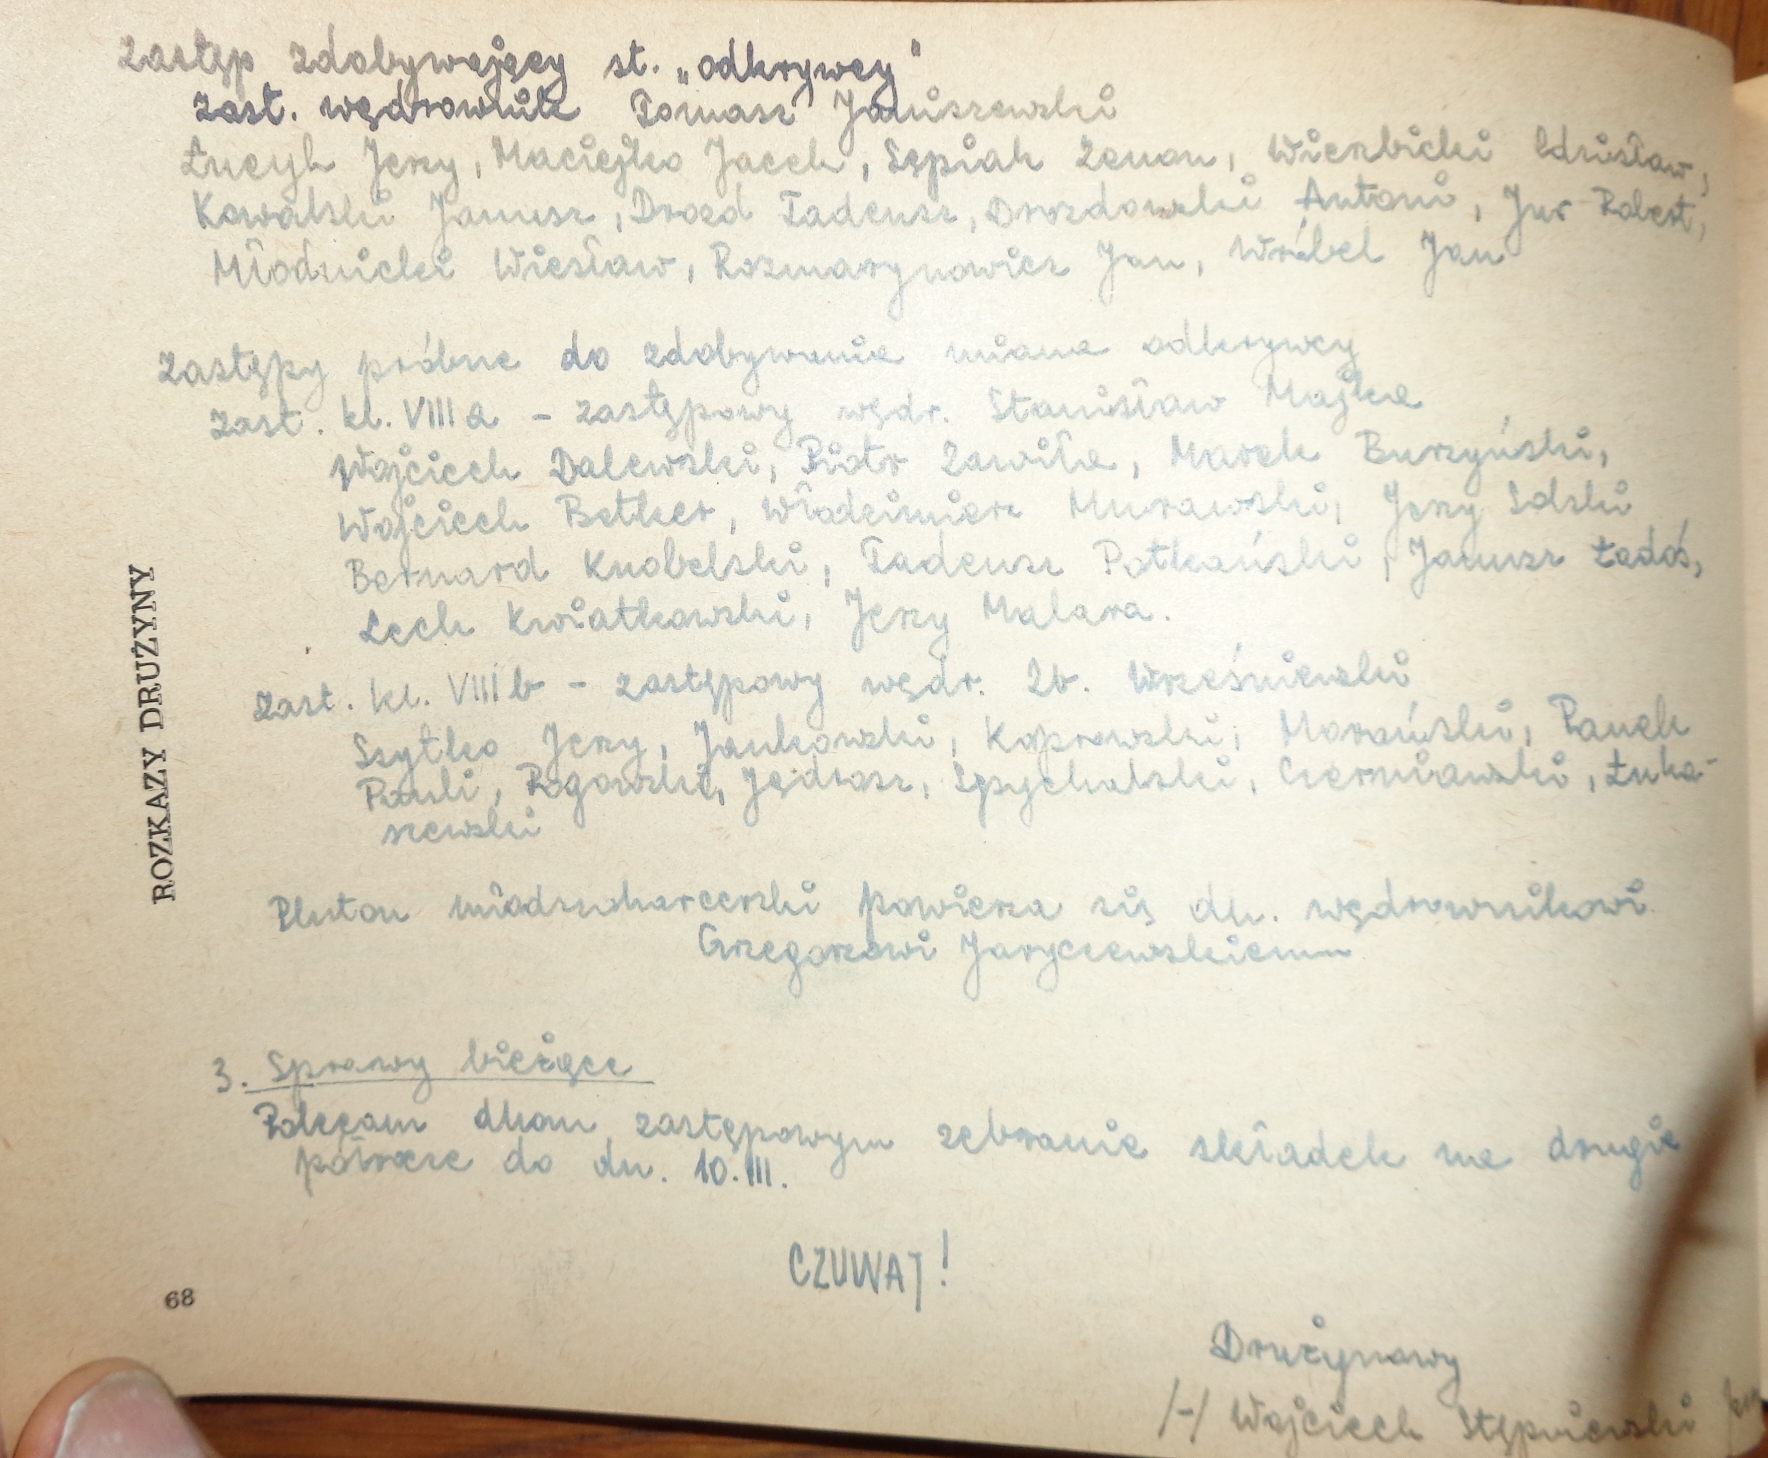 Zastęp zdobywający st. „odkrywcy"
zast. wędrownik Tomasz Januszewski
Łucyk Jerzy, Maciejko Jacek, Sępiak Zenon, Wierzbicki Zdzisław,
Kowalski Janusz, Drozd Tadeusz, Drozdowski Antoni, Jur Robert,
Młodnicki Wiesław, Rozmarynowicz Jan, Wróbel Jan
Zastępy próbne do zdobywania miana odkrywcy
zast. kl. VIII a – zastępowy wędr. Stanisław Majka
Wojciech Dalewski, Piotr Zawiła, Marek Burzyński,
Wojciech Betker, Włodzimierz Murawski, Jerzy
Bernard Knobelski, Tadeusz Potkański, Janusz Ładoś,
Lech Kwiatkowski, Jerzy Malara.
Zast. kl. VIII b – zastępowy wędr. Zb. Wrześniewski
Szytko Jerzy, Jankowski, Koprowski, Morański, Panek
Pauli, Rogowski, Jędrasz, Spychalski, Czerniawski, Łuka-
szewski
Pluton młodszoharcerski powierza się dh. wędrownikowi
Grzegorzowi Jaryczewskiemu
3. Sprawy bieżące
Polecam dhom zastępowym zebranie składek na drugie
półrocze do dn. 10.III.
CZUWAJ!
Drużynowy
/-/ Wojciech Stępniewski
ROZKAZY DRUŻYNY
68